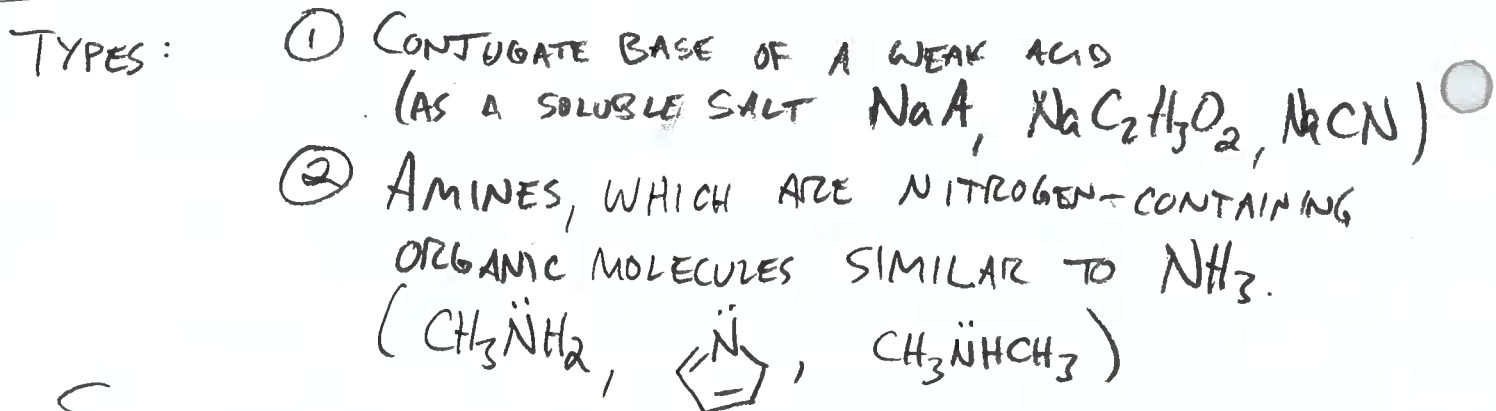 TYPES: ① CONJUGATE BASE OF A WEAK ACID
(AS A SOLUBLE SALT NaA, NaC₂H₃O₂, NaCN)
② AMINES, WHICH ARE NITROGEN-CONTAINING
ORGANIC MOLECULES SIMILAR TO NH₃.
(CH₃N̈H₂, N̈, CH₃N̈HCH₃)